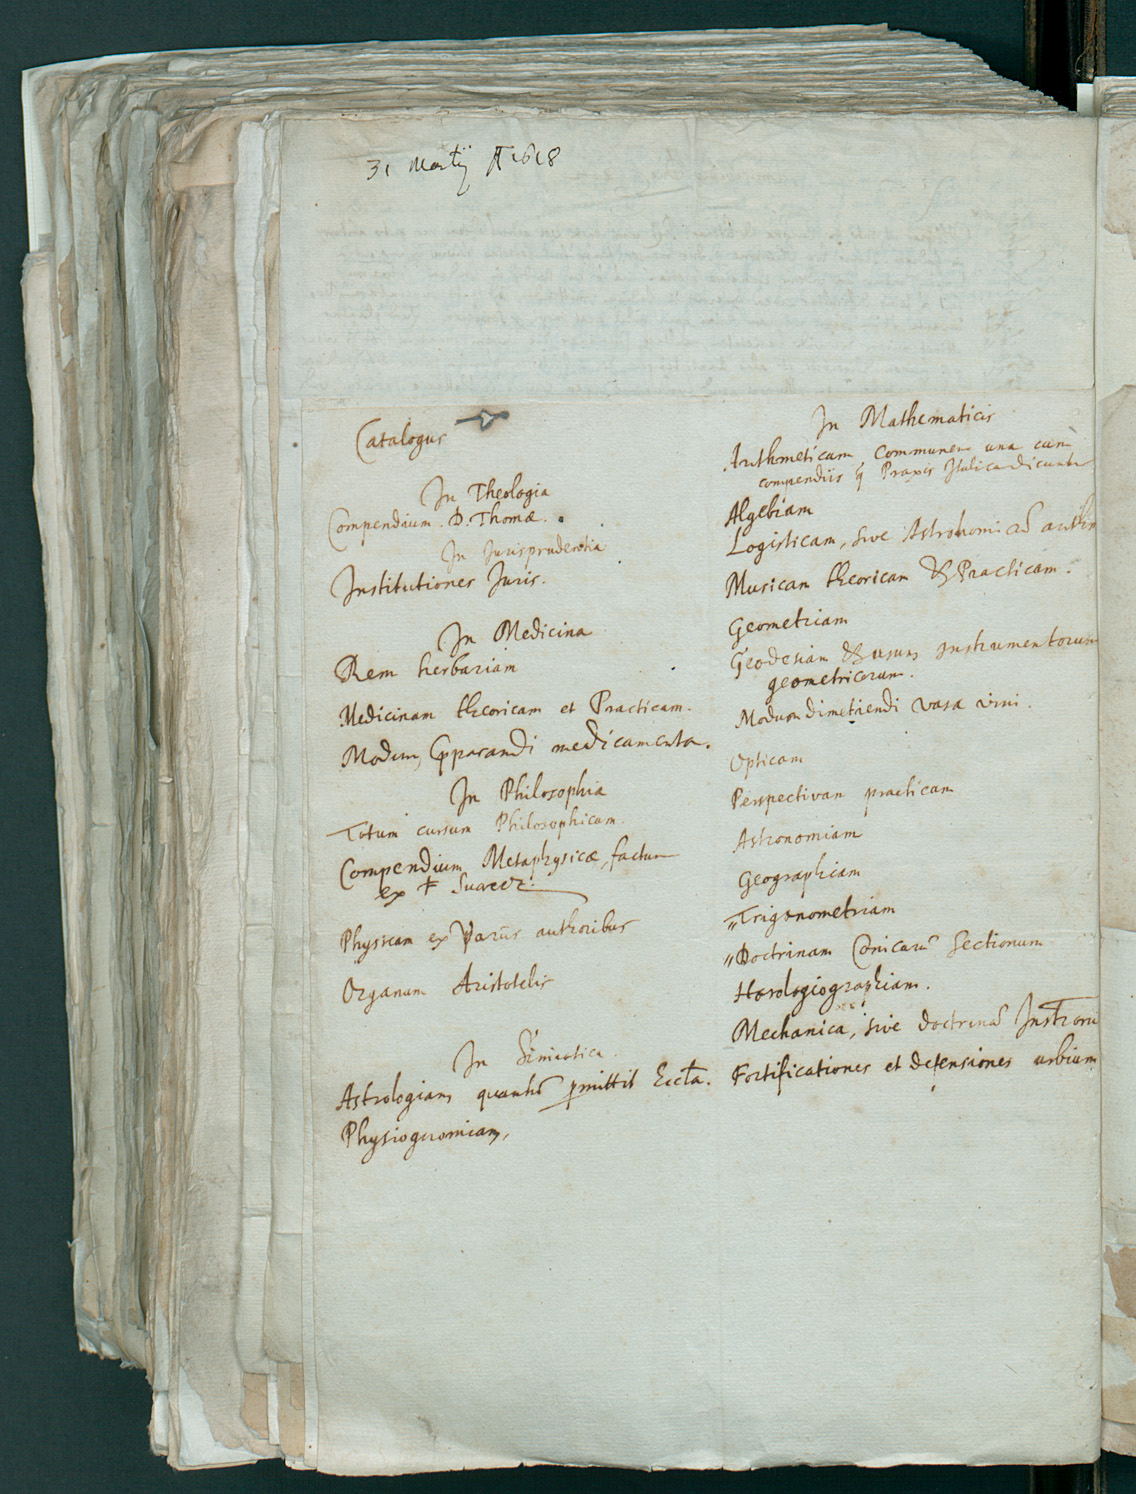 31 Martij 1618
Catalogus
In Theologia
Compendium D. Thomæ.
In Jurisprudentia
Institutiones Juris.
In Medicina
Rem herbariam
Medicinam theoricam et Practicam.
Modum pparandi medicamenta.
In Philosophia
Totum cursum Philosophicum.
Compendium Metaphysicæ, factum
ex Suarez.
Physicam ex Varijs authoribus
Organum Aristotelis
In
Astrologiam quantũ pmittit Eccła.
Physiognomiam,
In Mathematicis
Arithmeticam communem una cum
compendijs q Praxis Italica dicuntur
Algebram
Logisticam, sive Astronomicã arithm
Musicam theoricam & Practicam.
Geometriam
Geodesiam & usum instrumentorum
geometricorum.
Modum dimetiendi vasa vini.
Opticam
Perspectivam practicam
Astronomiam
Geographiam
„Trigonometriam
„Doctrinam Conicarũ Sectionum
Horologiographiam.
Mechanica, sive doctrinã
Fortificationes et defensiones urbium